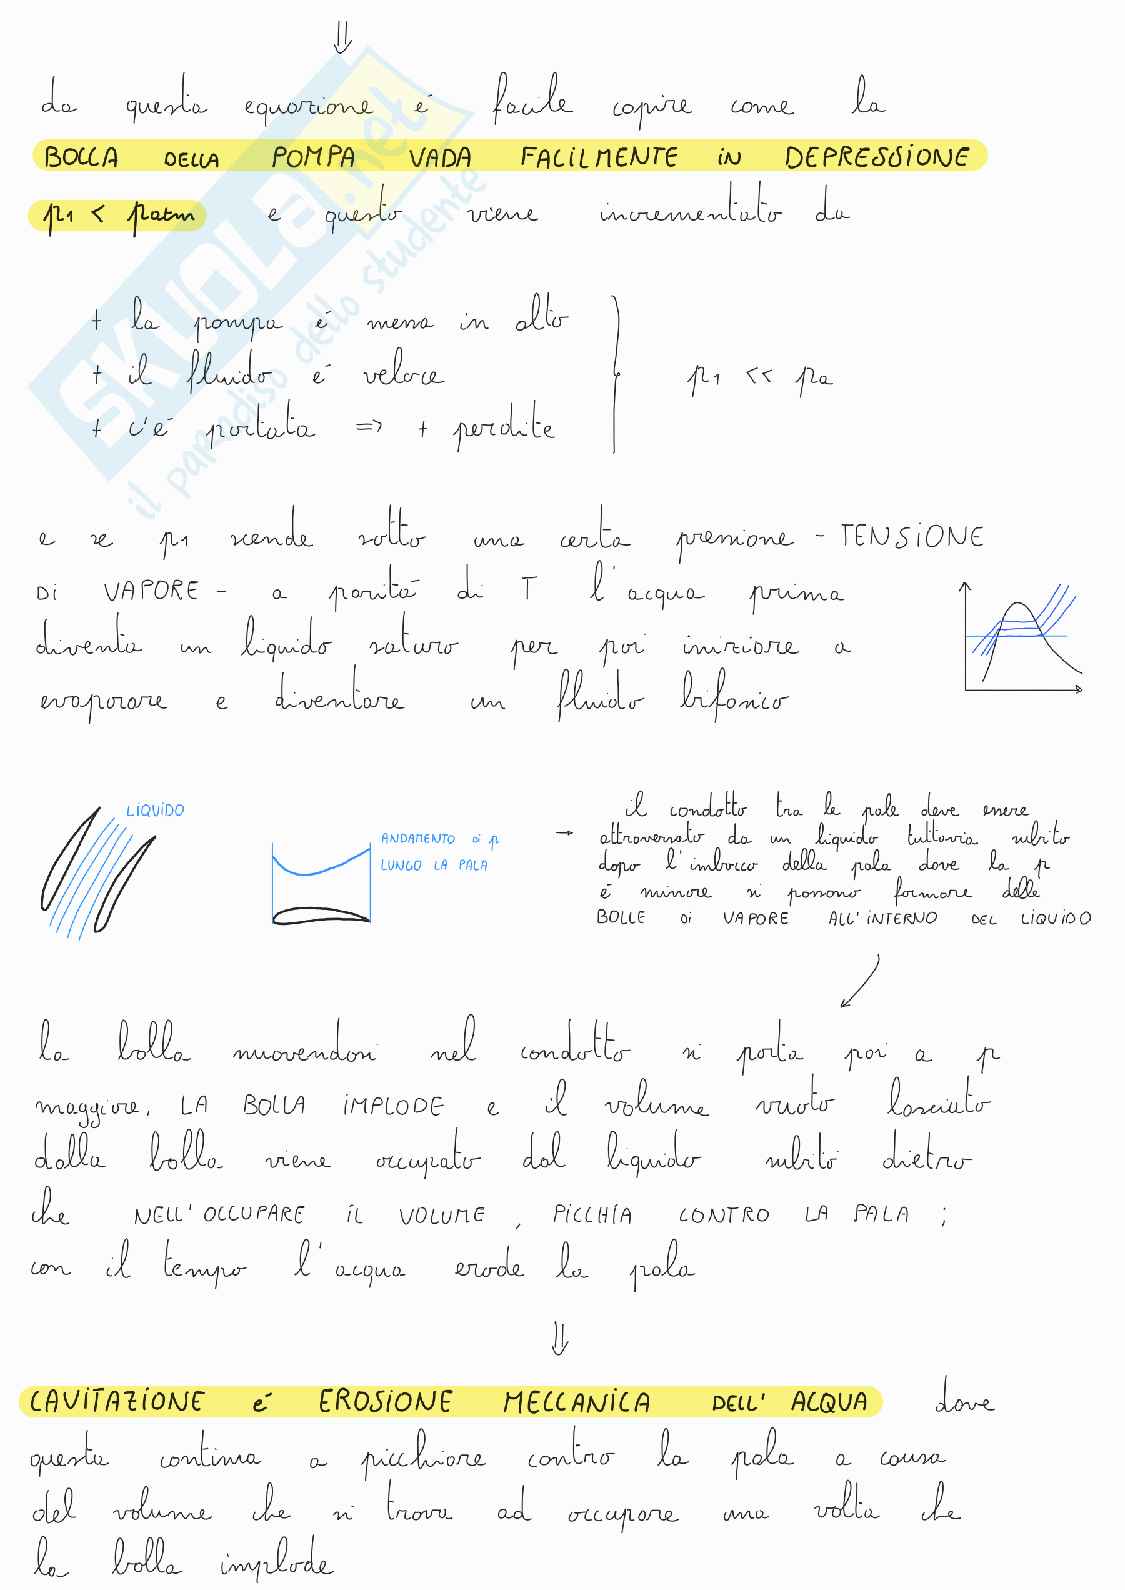 ⇓
da questa equazione é facile capire come la
BOCCA DELLA POMPA VADA FACILMENTE iN DEPRESSIONE
p1 < patm e questo viene incrementato da
+ la pompa é messa in alto
+ il fluido é veloce
+ c'é portata => + perdite
p1 << pa
e se p1 scende sotto una certa pressione - TENSIONE
DI VAPORE - a paritá di T l'acqua prima
diventa un liquido saturo per poi iniziare a
evaporare e diventare un fluido bifasico
LIQUIDO
ANDAMENTO di p
LUNGO LA PALA
→ il condotto tra le pale deve essere
attraversato da un liquido tuttavia subito
dopo l'imbocco della pala dove la p
é minore si possono formare delle
BOLLE DI VAPORE ALL'INTERNO DEL LIQUIDO
la bolla muovendosi nel condotto si porta poi a p
maggiore, LA BOLLA IMPLODE e il volume vuoto lasciato
dalla bolla viene occupato dal liquido subito dietro
che NELL'OCCUPARE IL VOLUME, PICCHIA CONTRO LA PALA;
con il tempo l'acqua erode la pala
⇓
CAVITAZIONE é EROSIONE MECCANICA DELL'ACQUA dove
questa continua a picchiare contro la pala a causa
del volume che si trova ad occupare una volta che
la bolla implode
SKUOLA.net
il paradiso dello studente